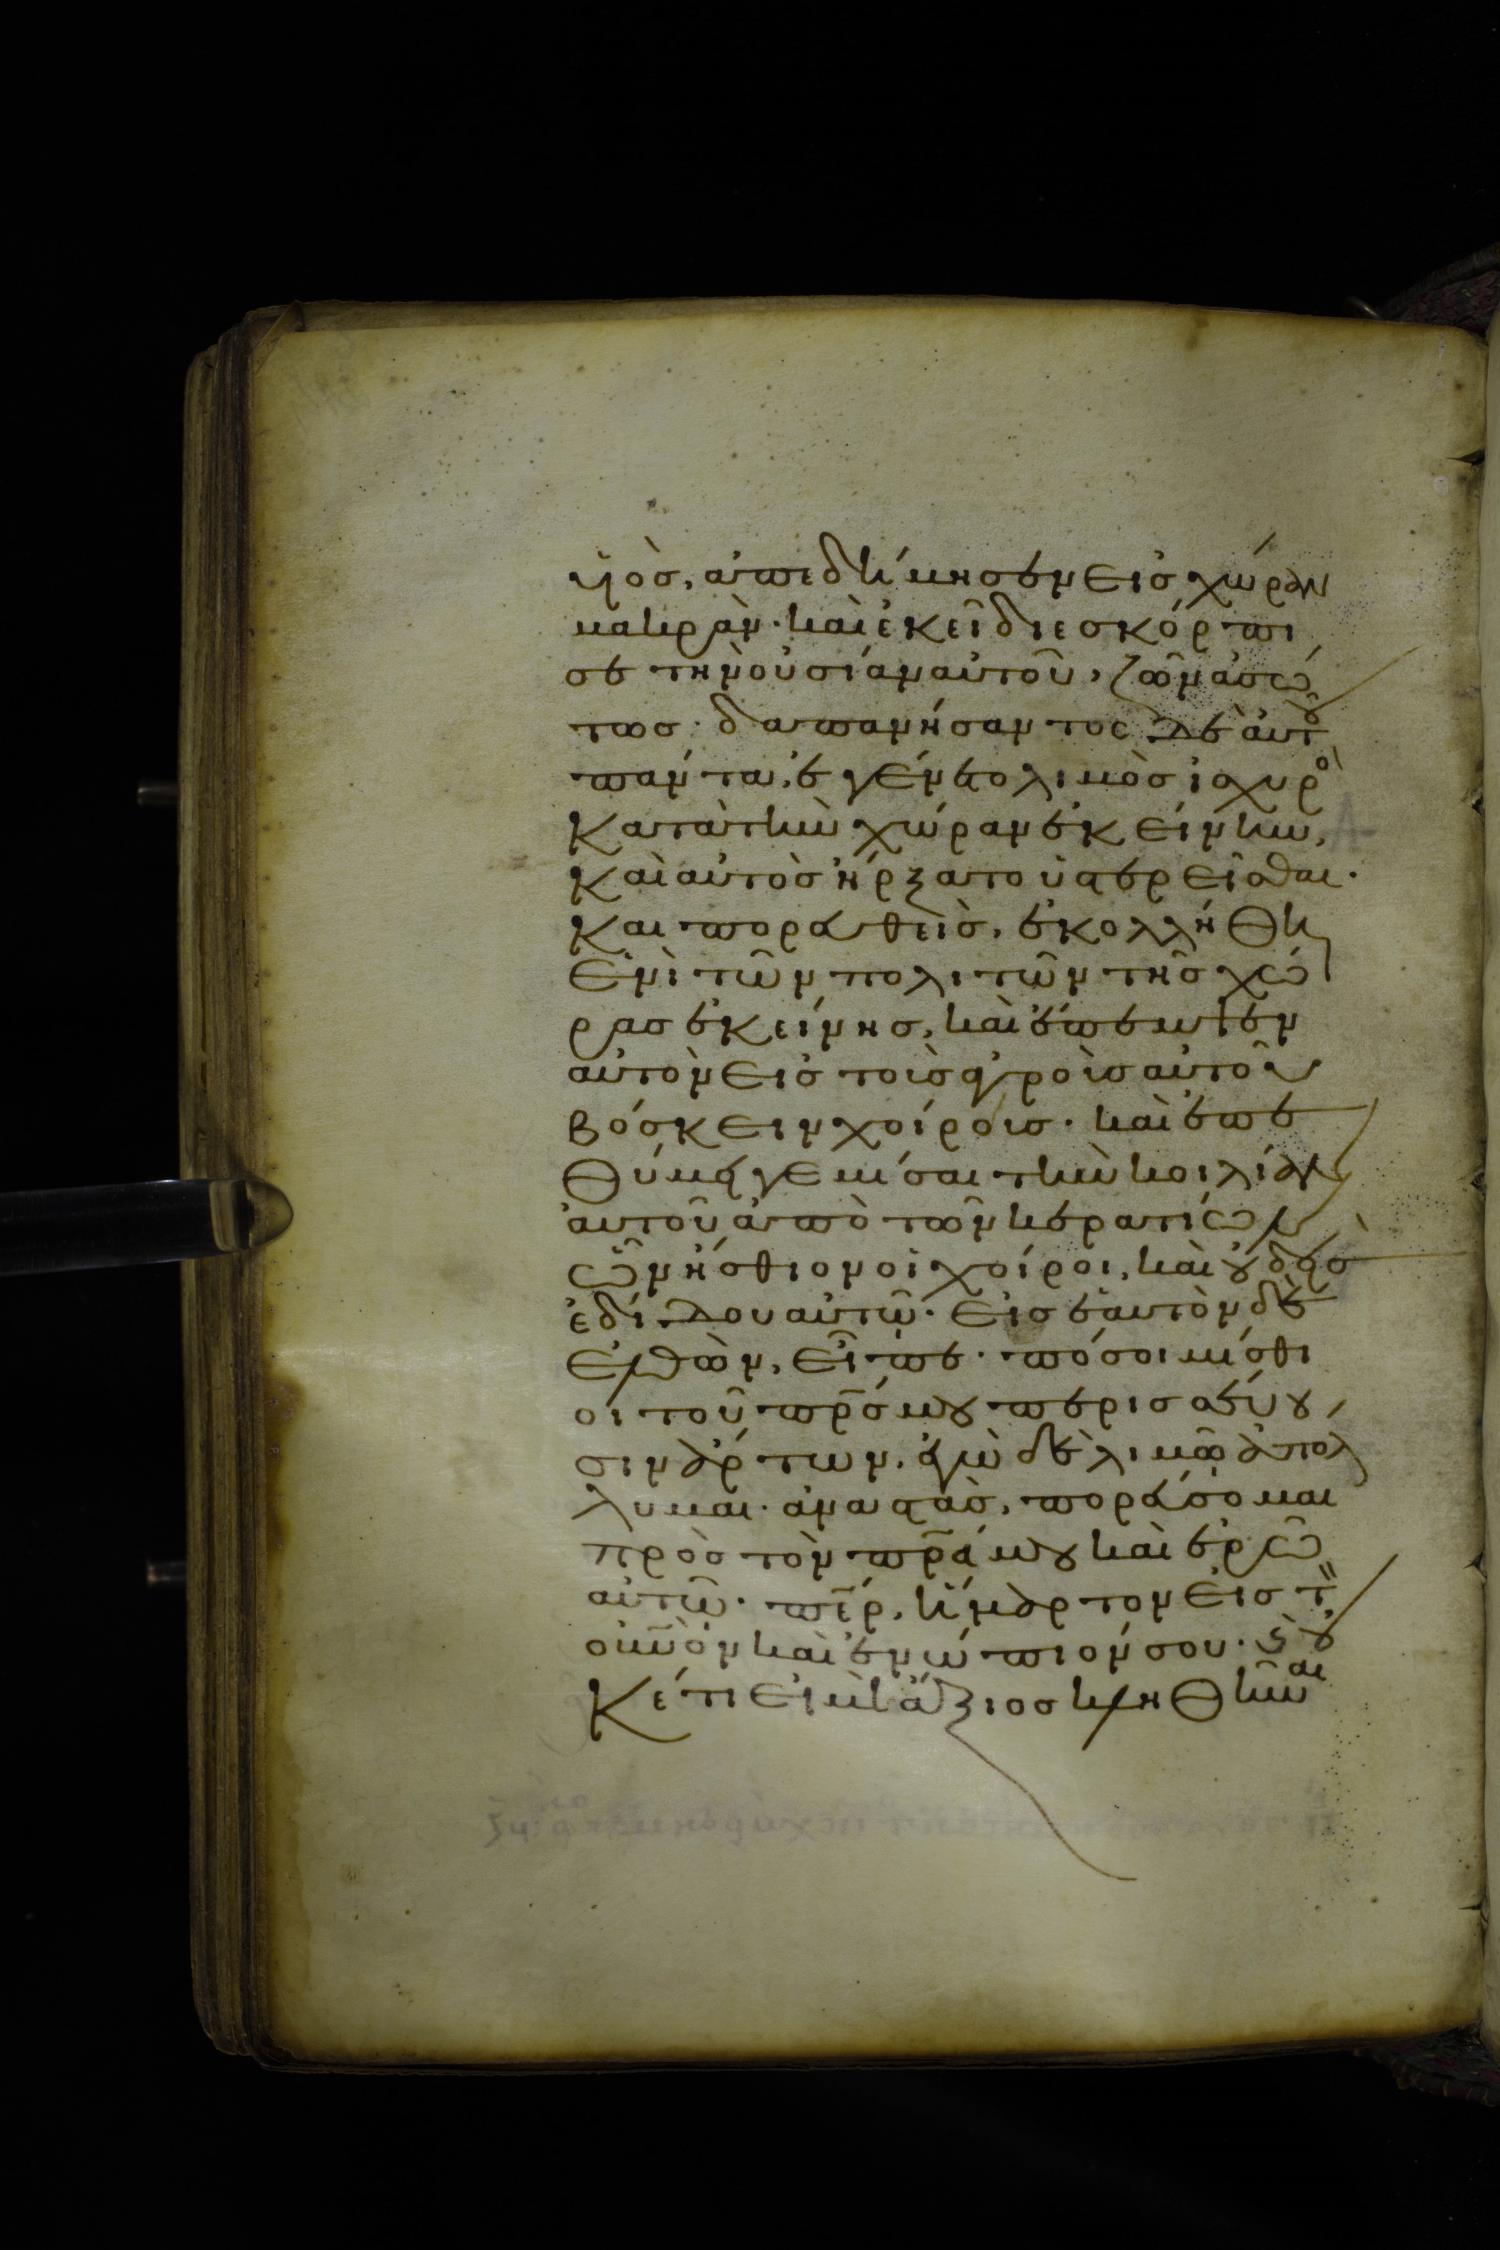 υἱὸσ, ἀπεδήμησεν εἰσ χώραν
μακρὰν· καὶ ἐκεῖ διεσκόρπι
σε τὴν οὐσίαν αὐτοῦ, ζῶν ἀσώ
τωσ· δαπανήσαντος δὲ αὐτȣ͂
πάντα, ἐγένετο λιμὸσ ἰσχυρὸ
κατὰ τὴν χώραν ἐκείνην,
καὶ αὐτὸσ ἤρξατο ὑστερεῖσθαι·
και πορευθεὶσ, ἐκολλήθη
ἑνὶ τῶν πολιτῶν τῆσ χώ
ρασ ἐκείνησ, καὶ ἔπεμψεν
αὐτὸν εἰσ τοὺσ ἀγροὺσ αὐτοῦ
βόσκειν χοίρουσ· καὶ ἐπε
θύμει γεμίσαι τὴν κοιλίαν
αὐτοῦ ἀπὸ τῶν κερατίων
ὧν ἤσθιον οἱ χοῖροι, καὶ ȣ̓δεὶσ
ἐδίδου αὐτῶ· εἰσ ἑαυτὸν δὲ
ἐλθὼν, εἶπε· πόσοι μίσθι
οι τοῦ πρ̅σ́ μȣ περισσεύȣ
σιν ἄρτων, ἐγὼ δὲ λιμῶ ἀπόλ
λυμαι· ἀναστὰσ, πορεύσομαι
πρὸσ τὸν πρ̅ά μȣ καὶ ἐρῶ
αὐτῶ· πε̅ρ́, ἥμαρτον εἰσ τ
οὐν̅ὸν καὶ ἐνώπιόν σου· ϗ ȣ̓
κέτι εἰμὶ ἄξιοσ κληθῆναι